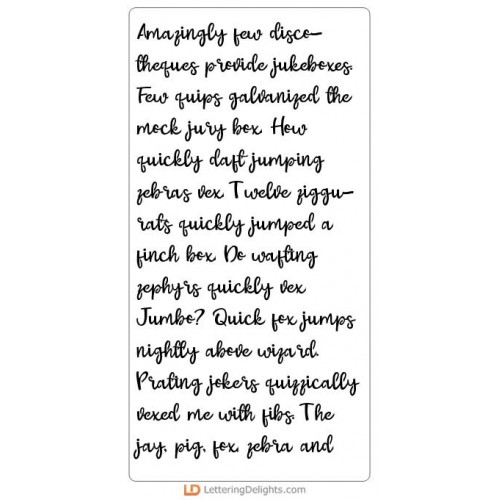 Amazingly few disco-
theques provide jukeboxes.
Few quips galvanized the
mock jury box. How
quickly daft jumping
zebras vex. Twelve ziggu-
rats quickly jumped a
finch box. Do wafting
zephyrs quickly vex
Jumbo? Quick fox jumps
nightly above wizard.
Prating jokers quizzically
vexed me with fibs. The
jay, pig, fox, zebra and
LD LetteringDelights.com